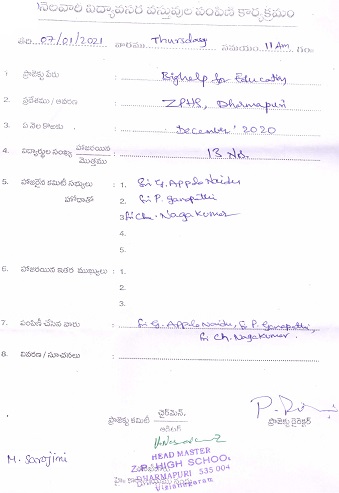 నెలవారి విద్యావసర వస్తువుల పంపిణీ కార్యక్రమం
తేది 07/01/2021 వారము Thursday సమయం 11 Am గం.
1. ప్రాజెక్టు పేరు : Bighelp for Education
2. ప్రదేశము / ఆవరణ : ZPHS, Dharmapuri
3. ఏ నెల కొరకు : December' 2020
4. విద్యార్థుల సంఖ్య హాజరయిన / మొత్తము : 13 No.
5. హాజరైన కమిటీ సభ్యులు : 1. Sri G. Appalo Naidu
హోదాతో 2. Sri P. Ganapathi
3. Sri Ch. Naga Kumar
4.
5.
6. హాజరయిన ఇతర ముఖ్యులు : 1.
2.
3.
7. పంపిణీ చేసిన వారు : Sri G. Appalo Naidu, Sri P. Ganapathi,
Sri Ch. Nagakumar.
8. వివరణ / సూచనలు :
ప్రాజెక్టు కమిటీ ఛైర్మెన్. ప్రాజెక్ట్ డైరెక్టర్
M. Sarojini
HEAD MASTER
Z.P. HIGH SCHOOL
DHARMAPURI 535 004
Vizianagaram